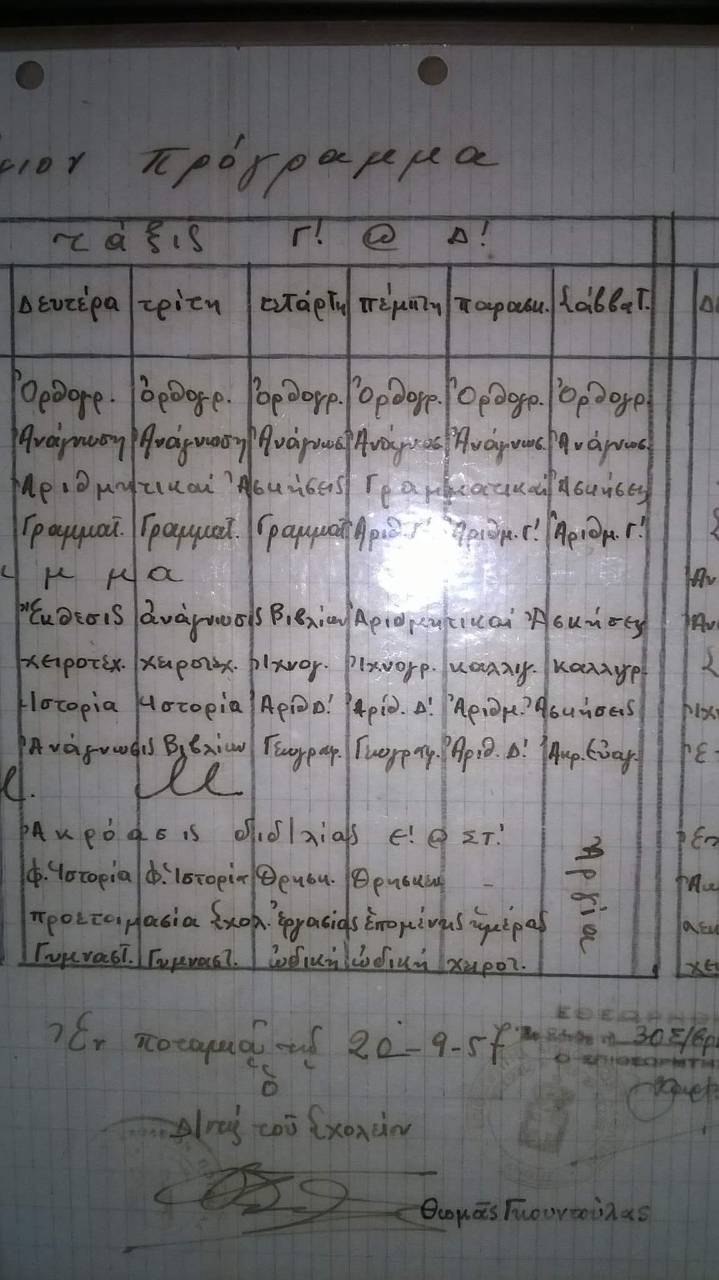 πρόγραμμα
τάξις Γ! @ Δ!
Δευτέρα τρίτη τετάρτη πέμπτη παρασκ. Σάββατ.
Ὀρθογρ. ὀρθογρ. Ὀρθογρ. Ὀρθογρ. Ὀρθογρ. Ὀρθογρ.
Ἀνάγνωση Ἀνάγνωση Ἀνάγνωσ Ἀνάγνωσ. Ἀνάγνωσ. Ἀνάγνωσ.
Ἀριθμητικαί Ἀσκήσεις Γραμματικαί Ἀσκήσεις
Γραμματ. Γραμματ. Γραμματ Ἀριθ. Γ! Ἀριθμ. Γ! Ἀριθμ. Γ!
μ μ α
Ἔκθεσις ἀνάγνωσις Βιβλίων Ἀριθμητικαί Ἀσκήσεις
χειροτέχ. χειροτέχ. Ἰχνογ. Ἰχνογρ. καλλιγ. καλλιγρ.
Ἱστορία Ἱστορία Ἀριθ Δ! Ἀρίθ. Δ! Ἀριθμ. Ἀσκήσεις
Ἀνάγνωσις Βιβλίων Γεωγραφ. Γεωγραφ. Ἀριθ. Δ! Ἀκρ. Εὐαγ.
Ἀκρόασις διδ/λίας Ε! @ ΣΤ!
Φ. Ἱστορία Φ. Ἱστορία Θρησκ. Θρησκευ -
προετοιμασία Σχολ. ἐργασίας ἑπομένης ἡμέρας
Γυμναστ. Γυμναστ. ὠδική ὠδική χειροτ.
Ἀργία
Ἐν ποταμιᾷ τῇ 20-9-57
30 Σ/βρ
ὁ
Δ/τής τοῦ Σχολείου
Θωμᾶς Γκουντούλας